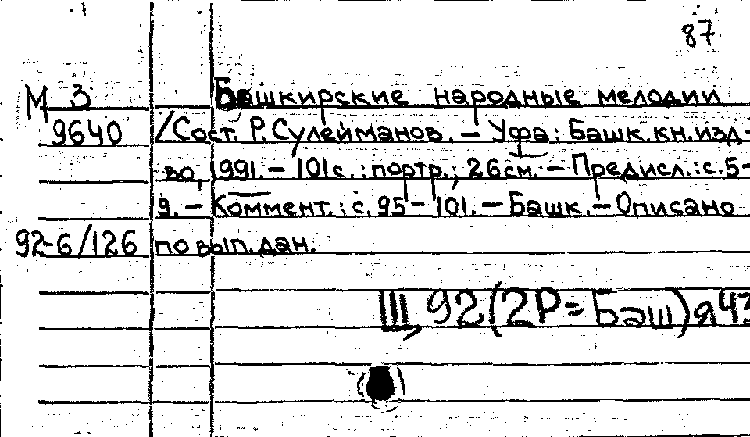 87
М 3 Башкирские народные мелодии
9640 /Сост. Р. Сулейманов. – Уфа: Башк. кн. изд-
во, 1991. – 101 с. : портр.; 26 см. – Предисл.: с. 5-
9. – Коммент.: с. 95 – 101. – Башк. – Описано
92-6/126 по вып. дан.
Щ 92(2Р=Баш)я43